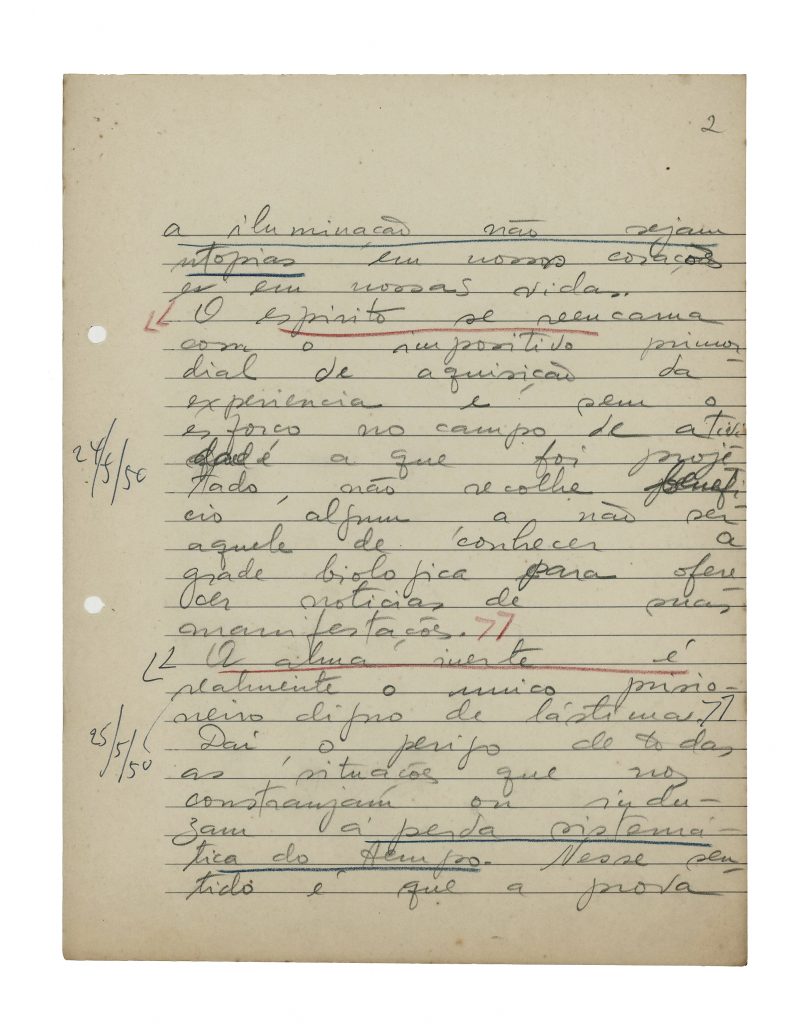 2
a iluminação não sejam
utopias em nossos corações
e em nossas vidas.
O espirito se reencarna
com o impositivo primor
dial de aquisição da
experiencia e sem o
esforco no campo de ativi
dade a que foi proje
tado, não recolhe benefi
cio algum a não ser
aquele de conhecer a
grade biologica para ofere
cer noticias de suas
manifestações.»
« A alma inerte é
realmente o unico prisio-
neiro digno de lástima.»
Daí o perigo de todas
as situações que nos
constranjam ou indu-
zam á perda sistemá-
tica do tempo. Nesse sen
tido é que a prova
24/5/50
25/5/50